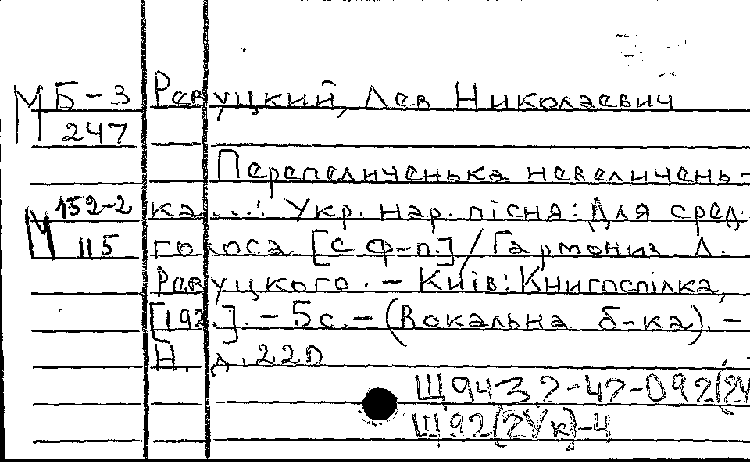 М Б-3 Ревуцкий, Лев Николаевич
247
Перепеличенька невеличень-
М 152-2 ка...: Укр. нар. пісня: Для сред.
115 голоса [с ф-п] / Гармониз. Л.
Ревуцкого. - Київ: Книгоспілка,
[192.]. - 5с. - (Вокальна б-ка). -
Н. д. 220
Щ9437-47-092(2У
Щ92(2Ук)-4